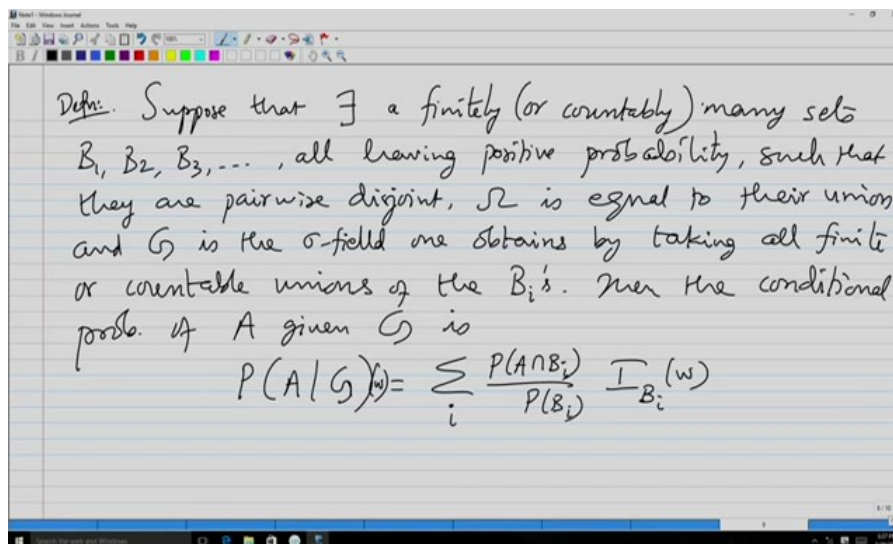 Note1 - Windows Journal
File Edit View Insert Actions Tools Help
Defn:. Suppose that ∃ a finitely (or countably) many sets
B₁, B₂, B₃, ..., all having positive probability, such that
they are pairwise disjoint, Ω is equal to their union
and G is the σ-field one obtains by taking all finite
or countable unions of the Bᵢ's. Then the conditional
prob. of A given G is
P(A|G)(ω) = ∑ᵢ P(A∩Bᵢ)/P(Bᵢ) I_Bᵢ(ω)
Search the web and Windows